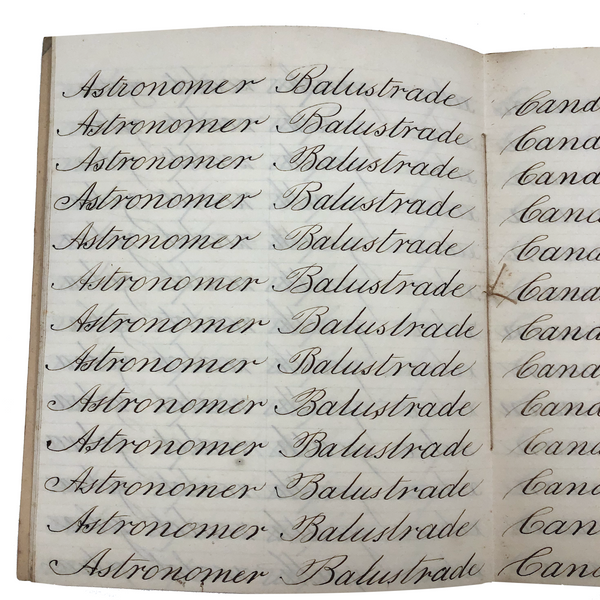 Astronomer Balustrade
Astronomer Balustrade
Astronomer Balustrade
Astronomer Balustrade
Astronomer Balustrade
Astronomer Balustrade
Astronomer Balustrade
Astronomer Balustrade
Astronomer Balustrade
Astronomer Balustrade
Astronomer Balustrade
Astronomer Balustrade
Astronomer Balustrade
Cand
Cand
Cand
Cand
Cand
Cand
Cand
Cand
Cand
Cand
Cand
Can
Cand